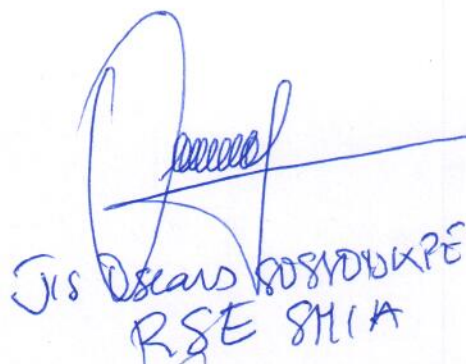 Jis Oscard SOSSOUKPE
RSE SMIA